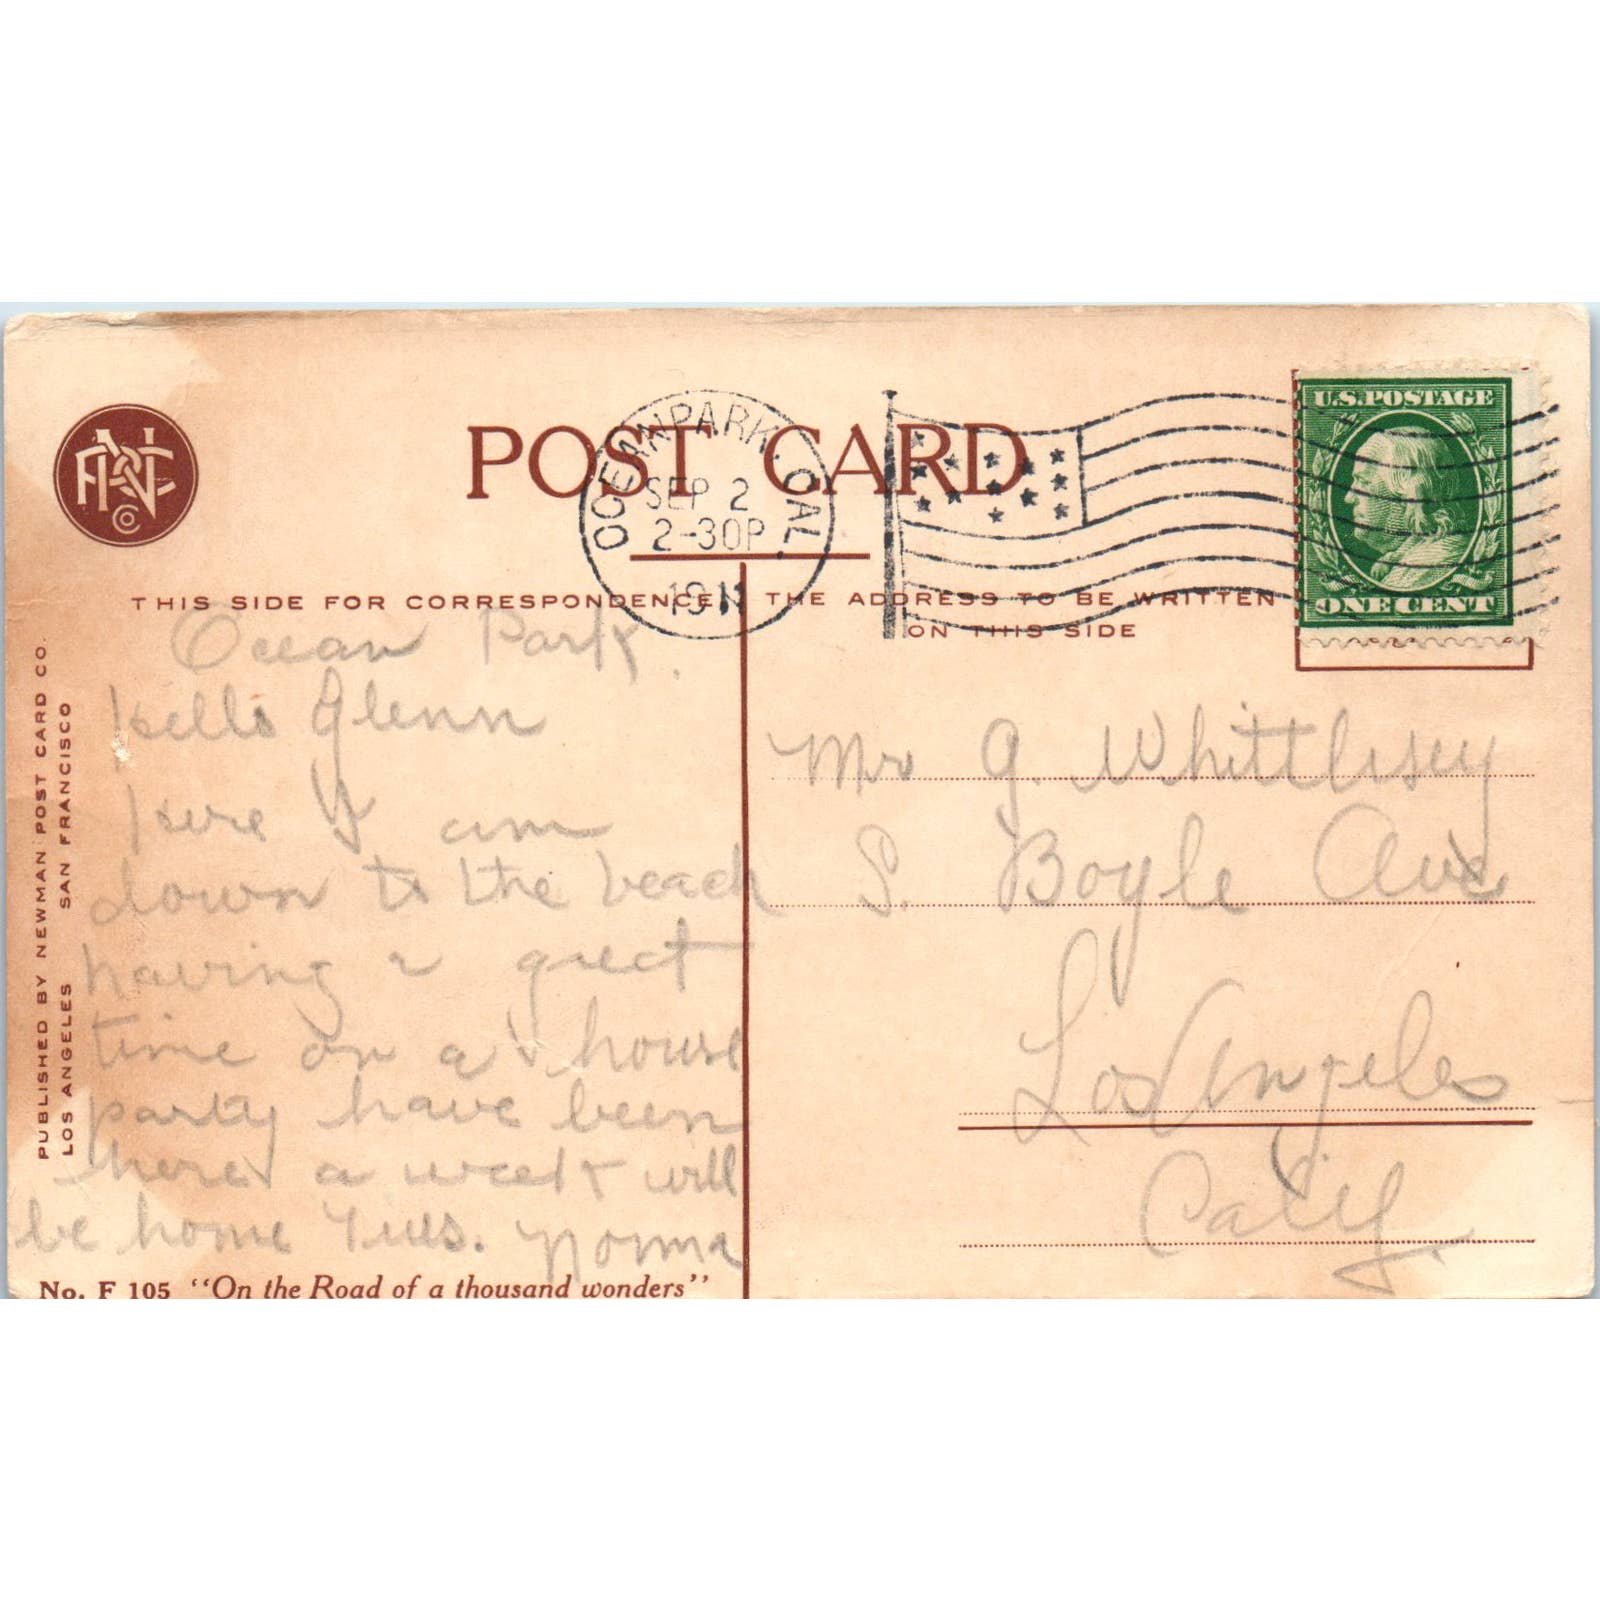 POST CARD
OCEAN PARK, CAL.
SEP 2
2-30P
U.S. POSTAGE
ONE CENT
THIS SIDE FOR CORRESPONDENCE
THE ADDRESS TO BE WRITTEN
ON THIS SIDE
PUBLISHED BY NEWMAN POST CARD CO.
LOS ANGELES SAN FRANCISCO
Ocean Park.
Hello Glenn
Here I am
down to the beach
having a great
time on a house
party have been
here a week will
be home Tues. Norma
Mr G. Whittlesey
S. Boyle Ave
Los Angeles
Calif.
No. F 105 "On the Road of a thousand wonders"